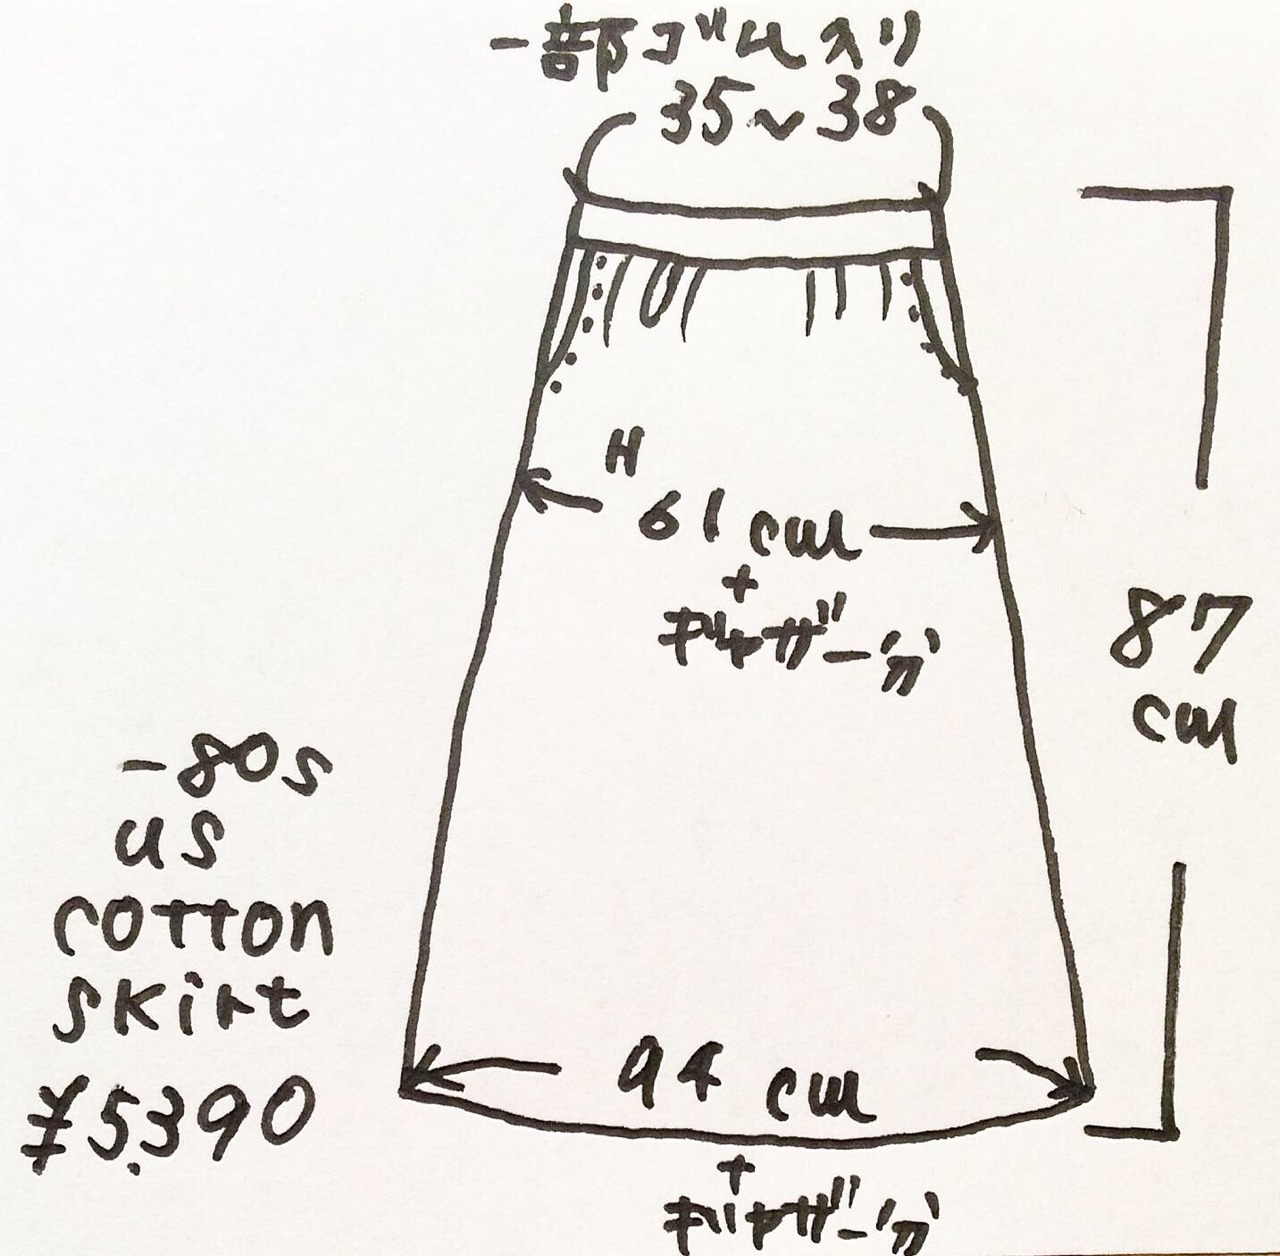 一部ゴム入り
35〜38
H
61 cm
+
ギャザー分
87
cm
-80s
us
cotton
skirt
¥5,390
94 cm
+
ギャザー分